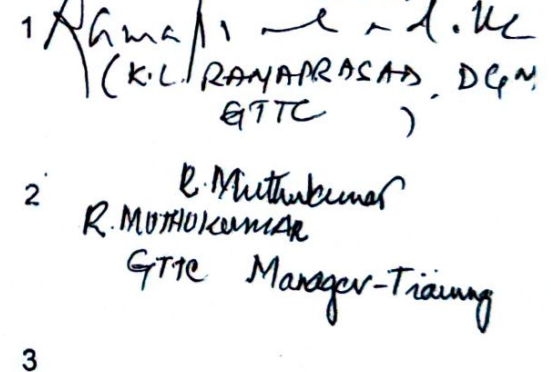 1 Ramaprasad.KL
(K.L. RAMAPRASAD, DGM
GTTC )
2 R.Muthukumar
R.MUTHUKUMAR
GTTC Manager-Training
3